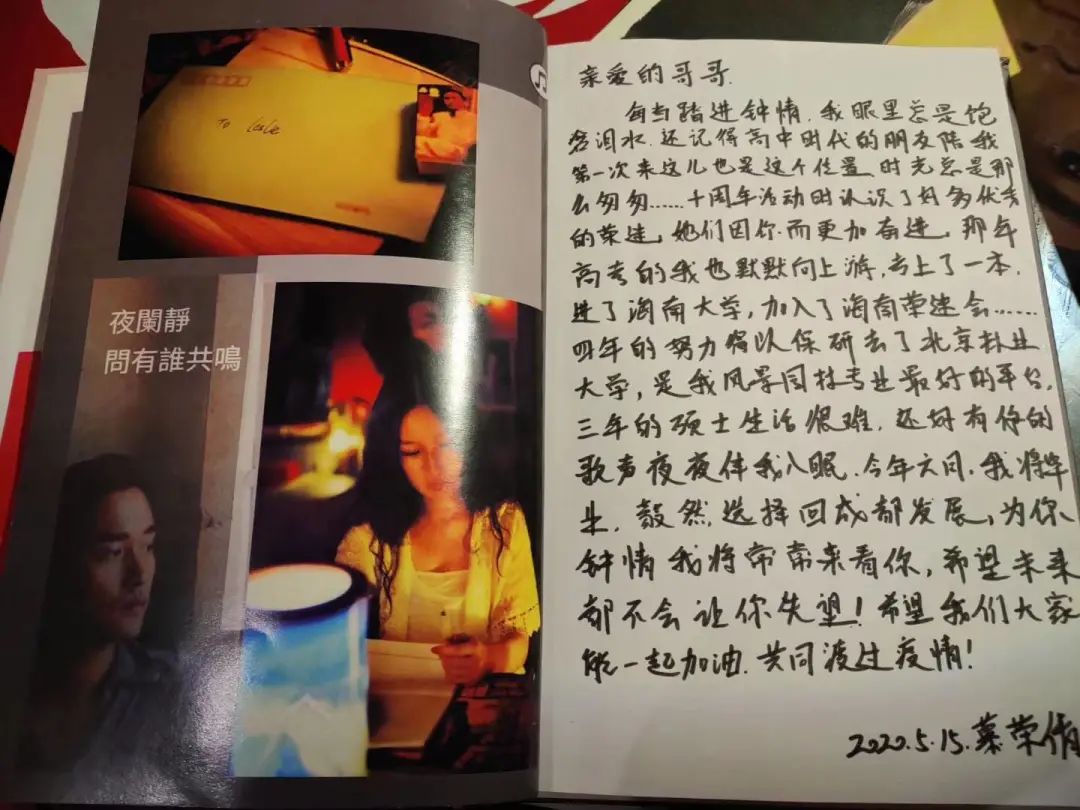 To Leslie
夜闌靜
問有誰共鳴
亲爱的哥哥.
每当踏进钟情,我眼里总是饱
含泪水.还记得高中时代的朋友陪我
第一次来这儿也是这个位置,时光总是那
么匆匆……十周年活动时认识了好多优秀
的荣迷,她们因你而更加奋进,那年
高考的我也默默向上游,考上了一本,
进了海南大学,加入了海南荣迷会……
四年的努力得以保研去了北京林业
大学,是我风景园林专业最好的平台,
三年的硕士生活很难,还好有你的
歌声夜夜伴我入眠.今年六月,我将毕
业,毅然选择回成都发展,为你
钟情我将常常来看你,希望未来
都不会让你失望!希望我们大家
能一起加油.共同渡过疫情!
2020.5.15.慕荣倩